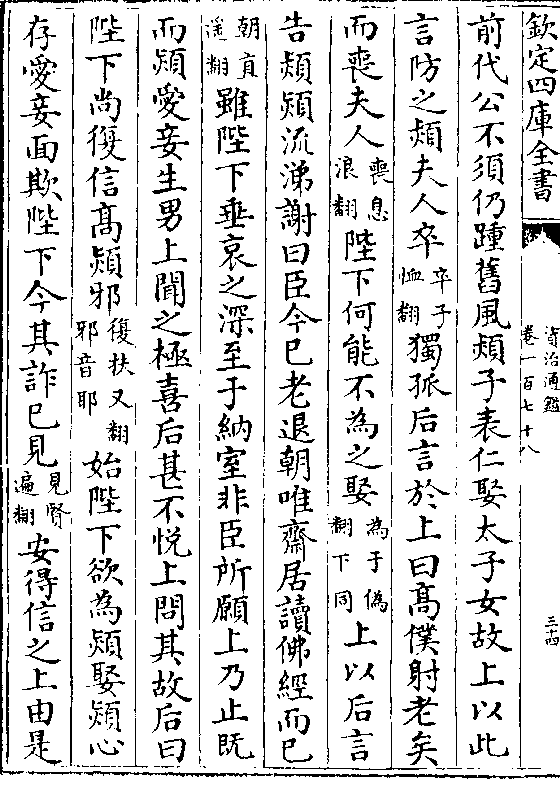 欽定四庫全書
資治通鑑
卷一百七十八
三十四
前代公不須仍踵舊風熲子表仁娶太子女故上以此
言防之熲夫人卒卒子恤翻獨孤后言於上曰高僕射老矣
而喪夫人喪息浪翻陛下何能不為之娶為于偽翻下同上以后言
告熲熲流涕謝曰臣今已老退朝唯齋居讀佛經而已
朝直遥翻雖陛下垂哀之深至于納室非臣所願上乃止既
而熲愛妾生男上聞之極喜后甚不悅上問其故后曰
陛下尚復信高熲邪復扶又翻邪音耶始陛下欲為熲娶熲心
存愛妾面欺陛下今其詐已見見賢遍翻安得信之上由是